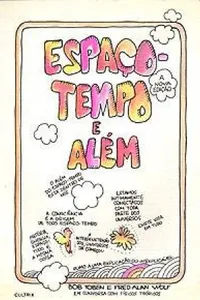 ESPAÇO-
TEMPO
E
ALÉM
A NOVA
EDIÇÃO
O ALÉM
DO ESPAÇO-TEMPO
ESTÁ DENTRO DE
NÓS
A CONSCIÊNCIA
É A ORIGEM
DE TODO ESPAÇO-TEMPO
ESTAMOS
INTIMAMENTE
CONECTADOS
COM TODA
PARTE DO
UNIVERSO
MATÉRIA
ENERGIA
ESPAÇO-TEMPO
TUDO É
A MESMA
COISA
EXISTE VIDA
EM TUDO
RUMO A UMA EXPLICAÇÃO DO INEXPLICÁVEL
BOB TOBEN E FRED ALAN WOLF
EM CONVERSA COM FÍSICOS TEÓRICOS
CULTRIX